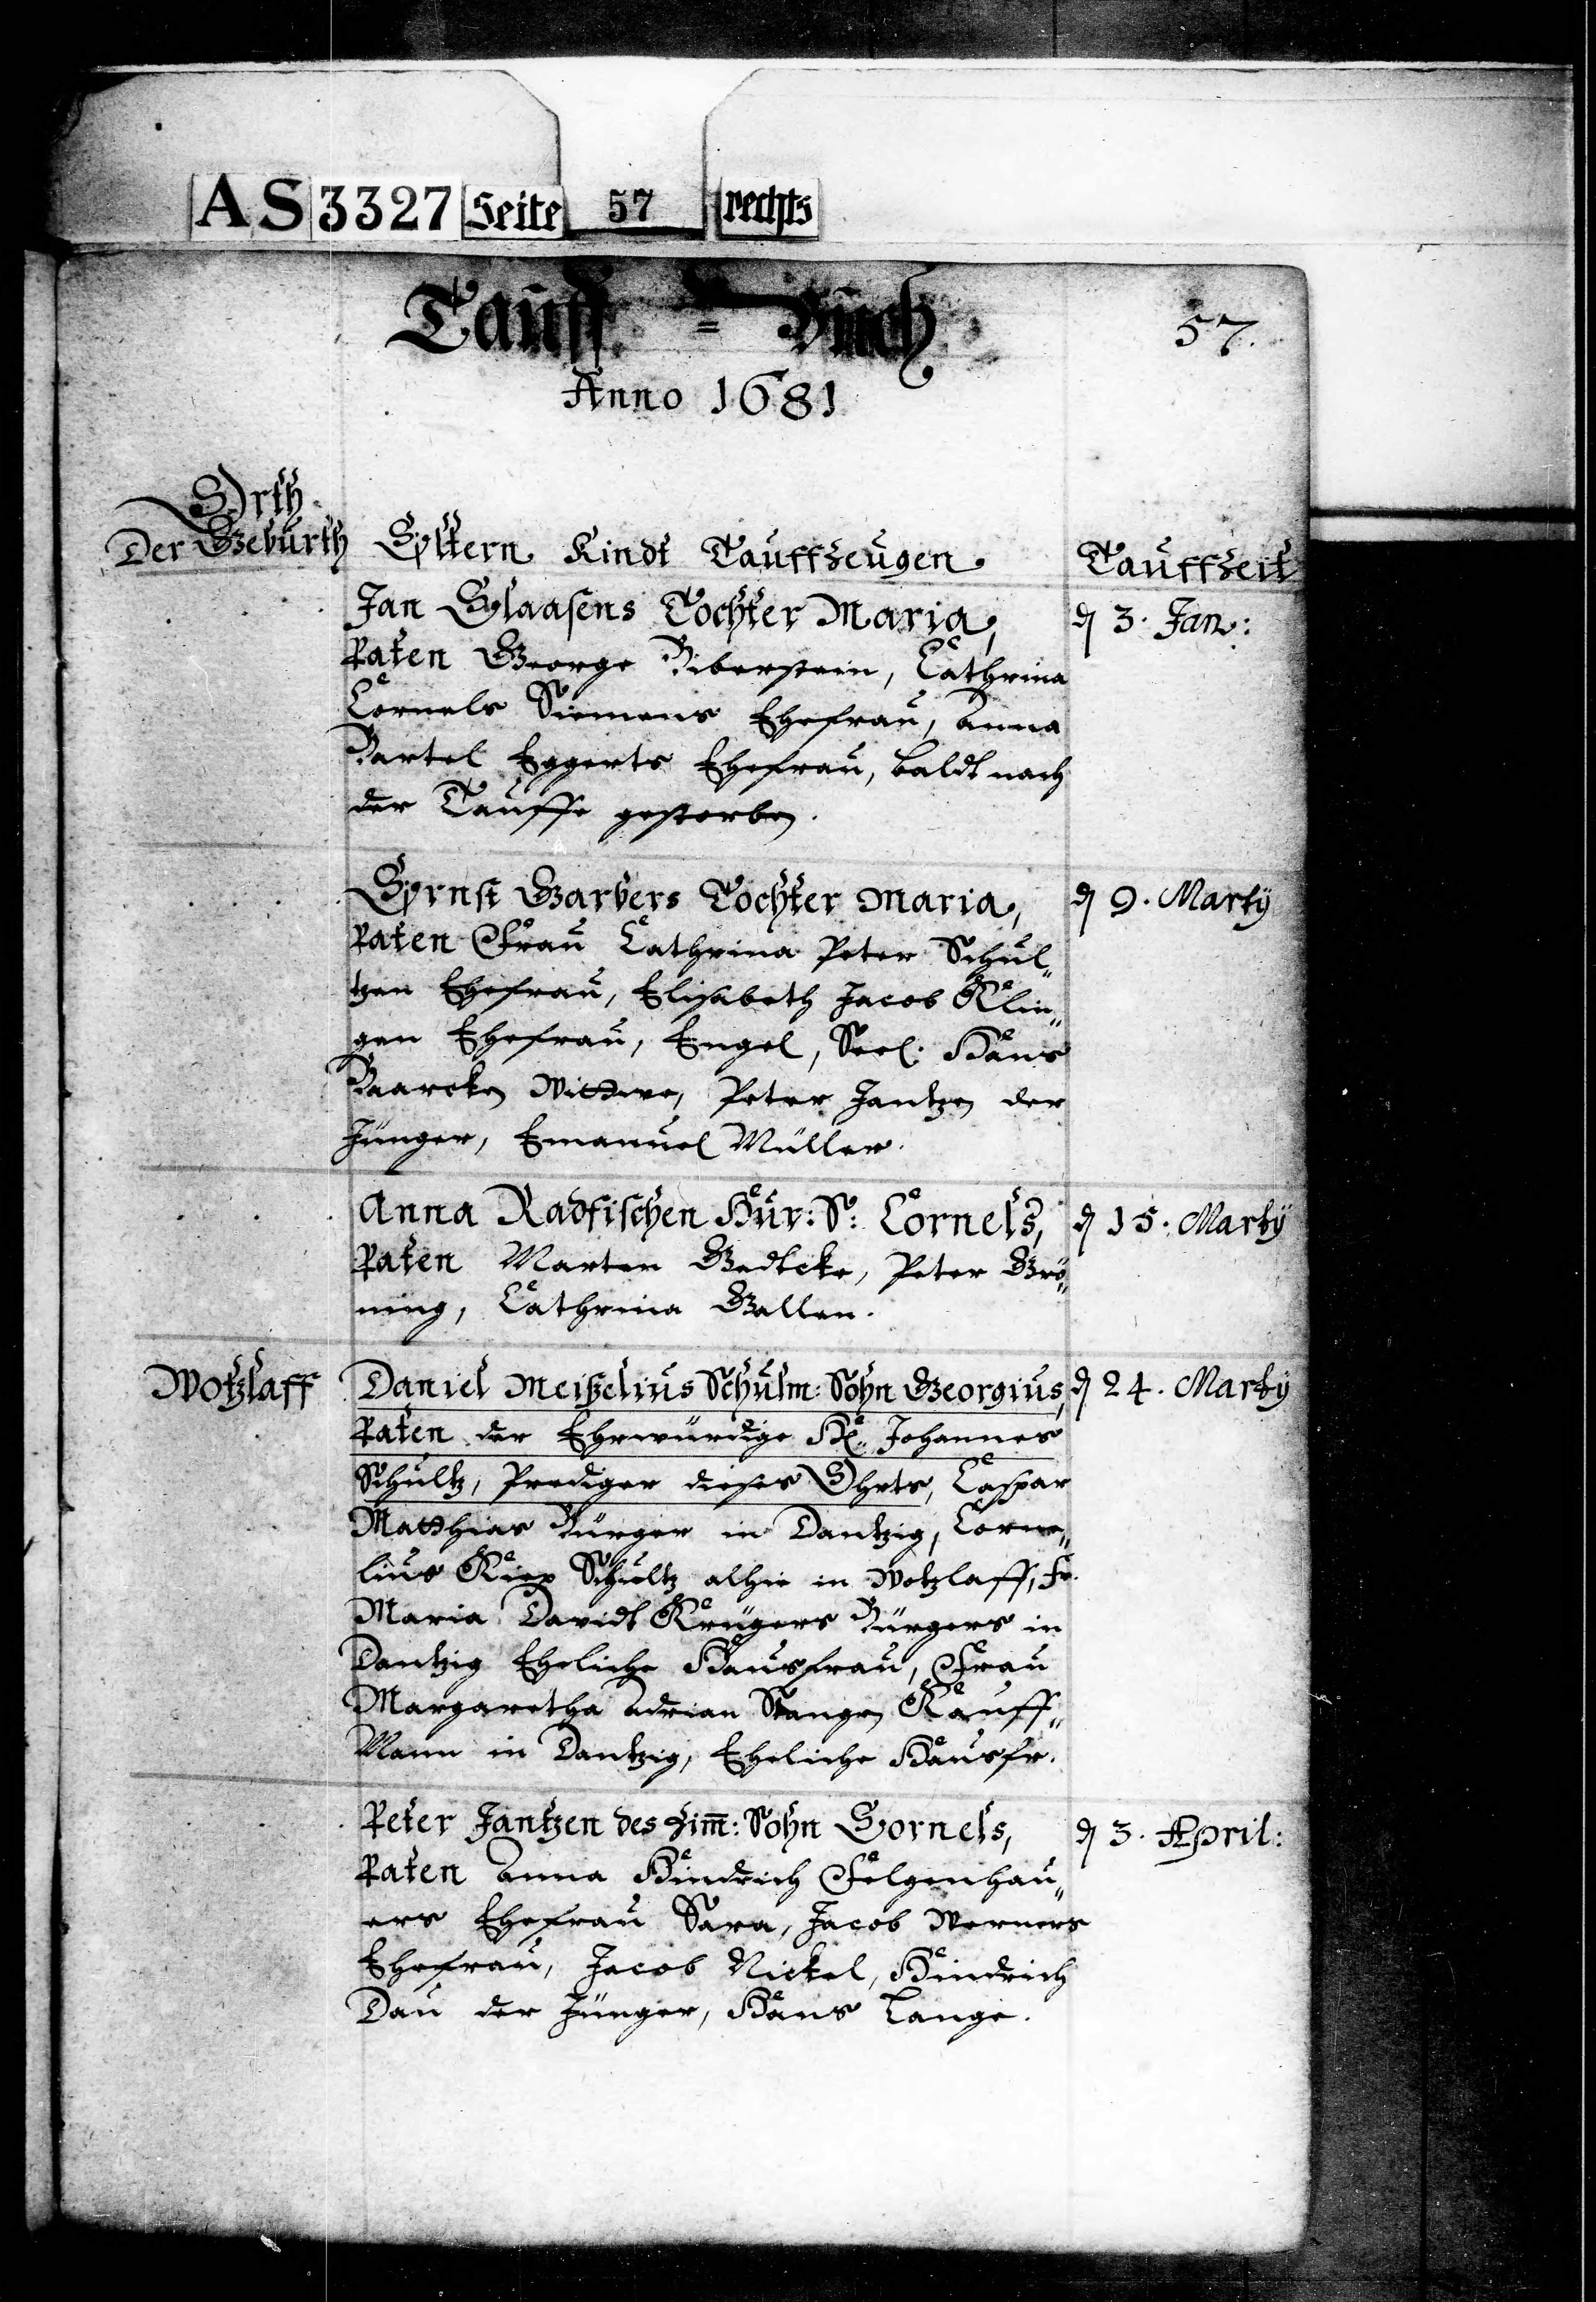 AS 3327 Seite 57 rechts
Tauff = Buch
57.
Anno 1681
Orth
Der Geburth
Eltern Kindt Tauffzeugen
Tauffzeit
Jan Claasens Tochter Maria,
d 3. Jan:
Paten George Biberstein, Cathrina
Cornels Siemens Ehefrau, Anna
Bartel Eggerts Ehefrau, baldt nach
der Tauffe gestorben.
Ernst Garbers Tochter Maria,
d 9. Martij
Paten Frau Cathrina Peter Schul„
tzen Ehefrau, Elisabeth Jacob Klin„
gen Ehefrau, Engel, Seel. Hans
Baarcken Wittwe, Peter Jantzen der
Jünger, Emanuel Müller.
Anna Radtischen Hur: S: Cornels,
d 15. Martij
Paten Marten Gedtcke, Peter Grö„
ning, Cathrina Gallen.
Wotzlaff
Daniel Meißelius Schulm: Sohn Georgius,
d 24. Martij
Paten der Ehrwürdige H. Johannes
Schultz, Prediger dieses Ohrts, Caspar
Matthias Bürger in Dantzig, Corne„
lius Kiep Schultz alhie in Wotzlaff, Fr.
Maria Davidt Krügers Bürgers in
Dantzig Eheliche Hausfrau, Frau
Margaretha Adrian Stangen Kauff„
Mann in Dantzig, Eheliche Hausfr.
Peter Jantzen des Zim̄: Sohn Cornels,
d 3. April:
Paten Anna Hindrich Felgenhau„
ers Ehefrau Sara, Jacob Werners
Ehefrau, Jacob Nickel, Hindrich
Dau der Jünger, Hans Lange.